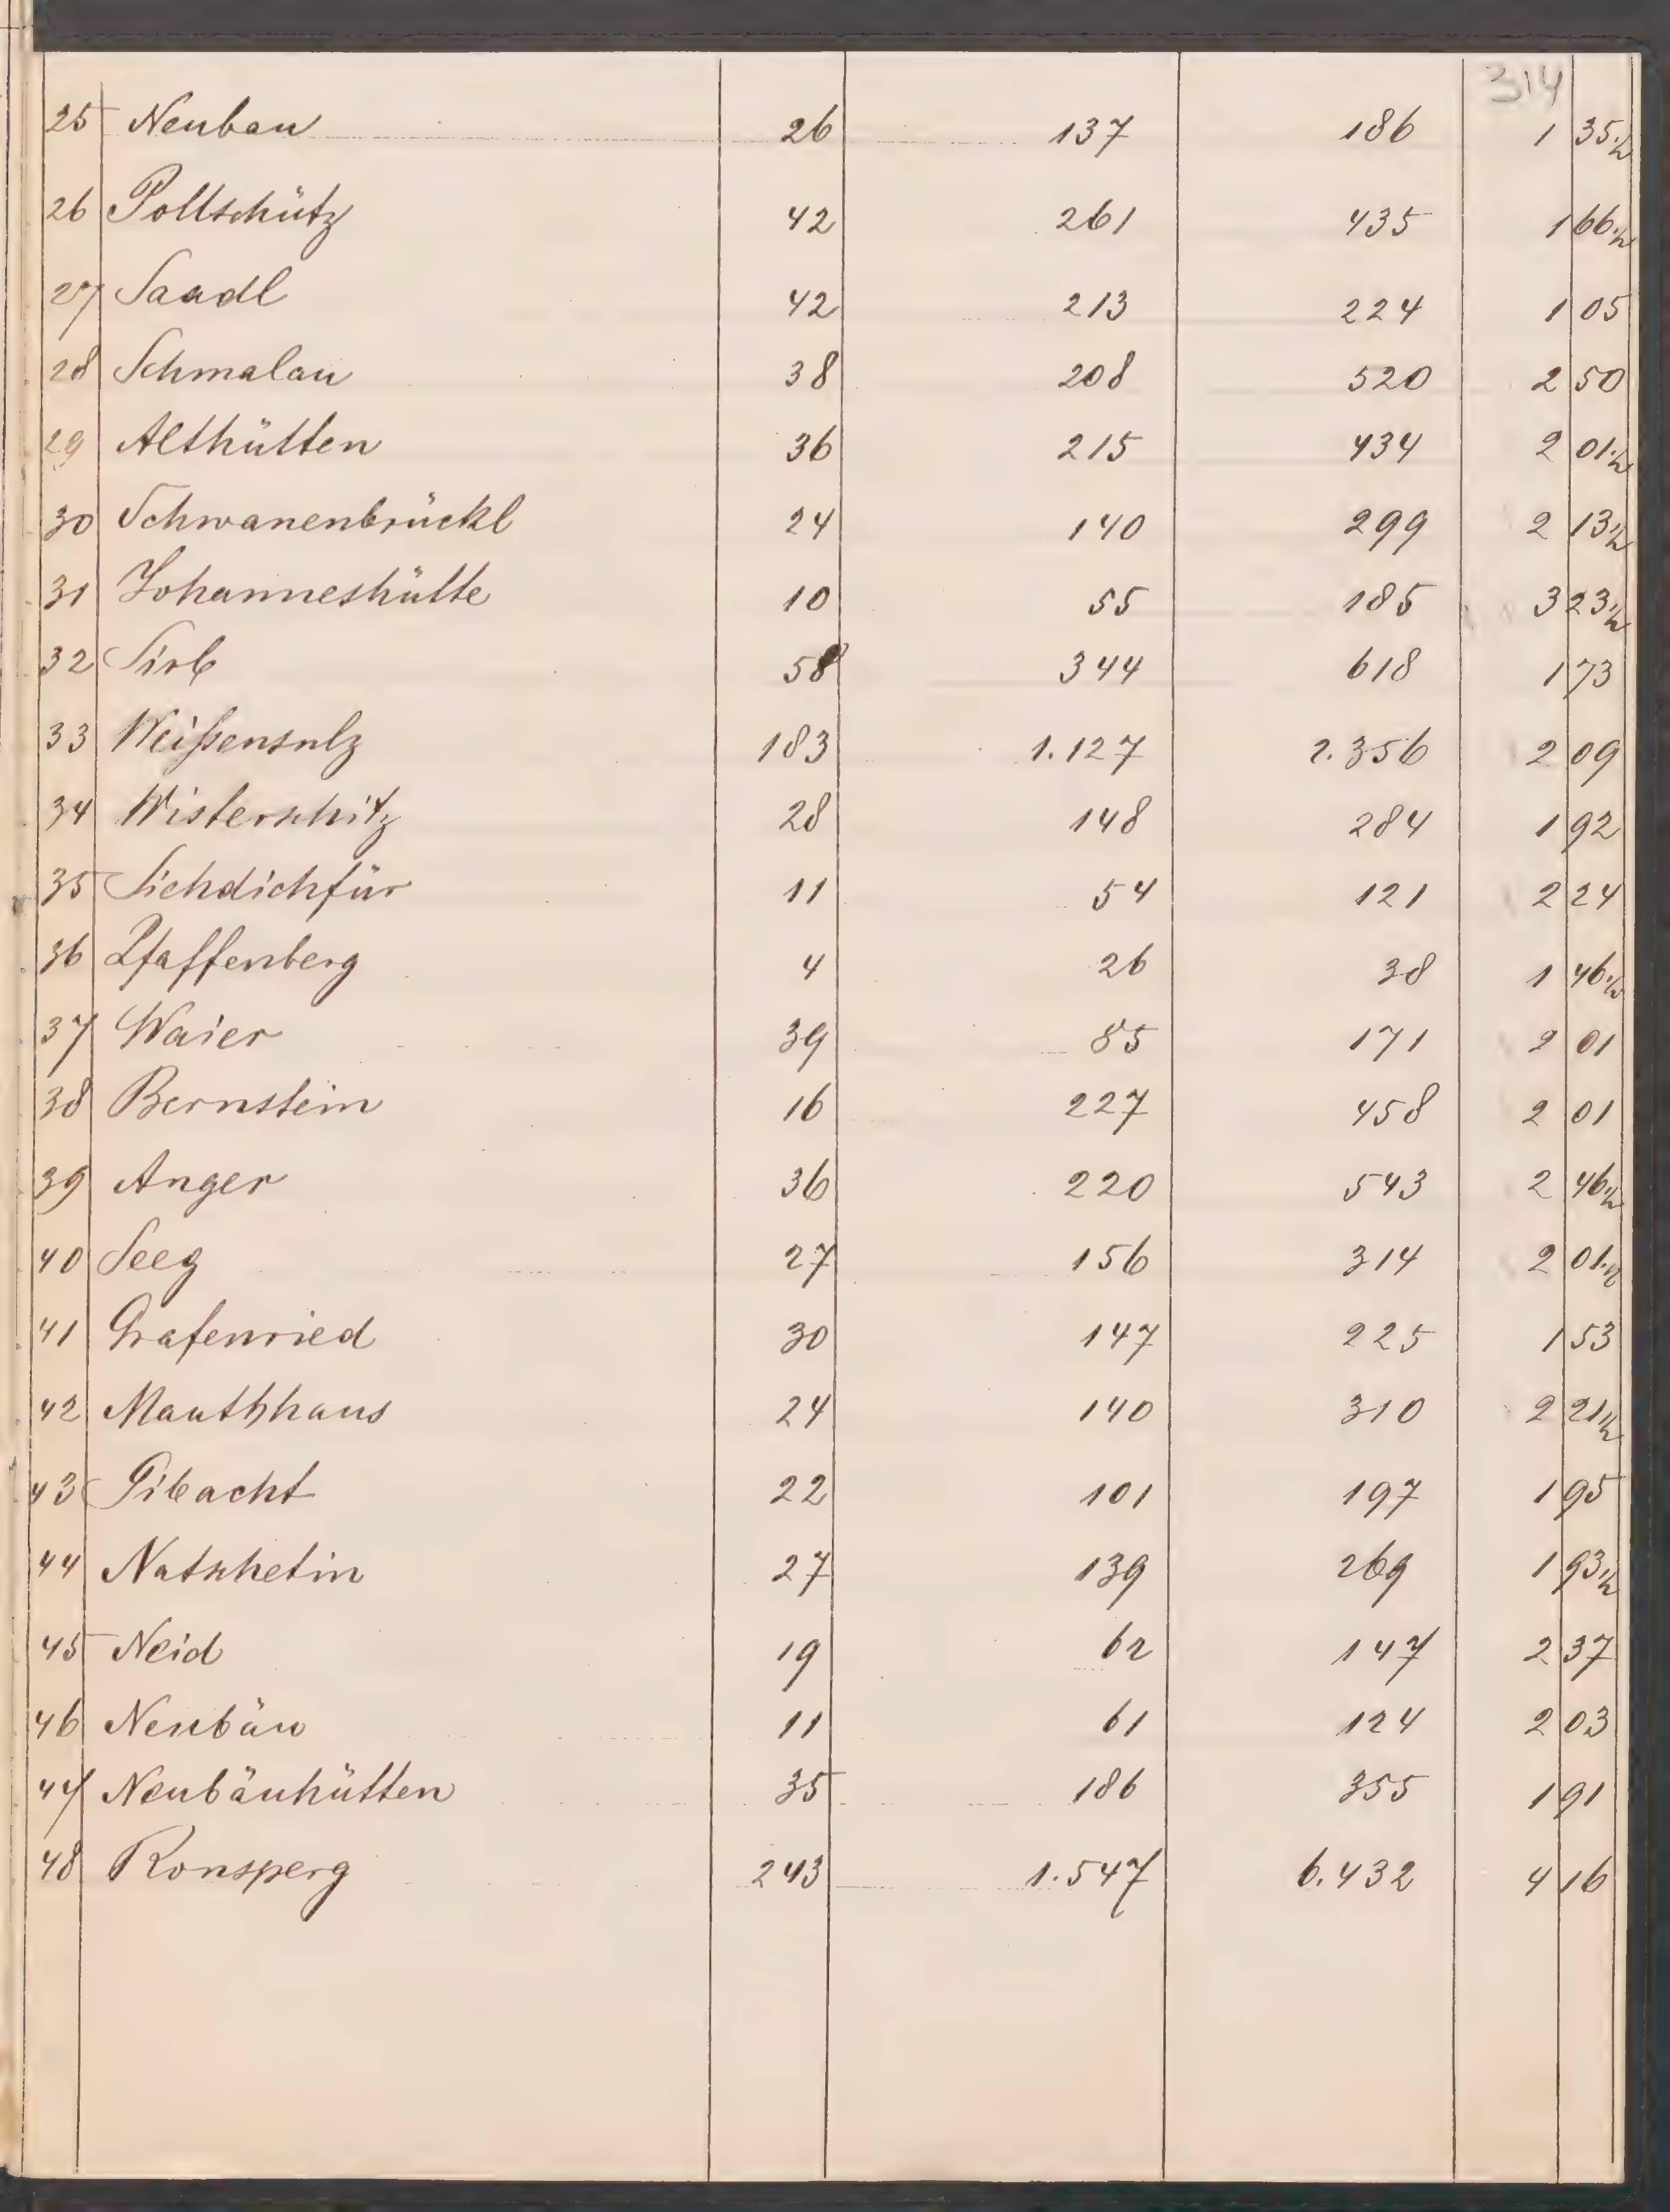 314
25 Neubau 26 137 186 1 35 ½
26 Pollschütz 42 261 435 1 66 ½
27 Saadl 42 213 224 1 05
28 Schmalau 38 208 520 2 50
29 Althütten 36 215 434 2 01 ½
30 Schwanenbrückl 24 140 299 2 13 ½
31 Johanneshütte 10 55 185 3 23 ½
32 Sirb 58 344 618 1 73
33 Weißensulz 183 1.127 2.356 2 09
34 Wisterschitz 28 148 284 1 92
35 Siehdichfür 11 54 121 2 24
36 Pfaffenberg 4 26 38 1 46 ½
37 Waier 39 85 171 2 01
38 Bernstein 16 227 458 2 01
39 Anger 36 220 543 2 46 ½
40 Seeg 27 156 314 2 01 ½
41 Grafenried 30 147 225 1 53
42 Mauthhaus 24 140 310 2 21 ½
43 Pibacht 22 101 197 1 95
44 Natschetin 27 139 269 1 93 ½
45 Neid 19 62 147 2 37
46 Neubäu 11 61 124 2 03
47 Neubäuhütten 35 186 355 1 91
48 Ronsperg 243 1.547 6.432 4 16